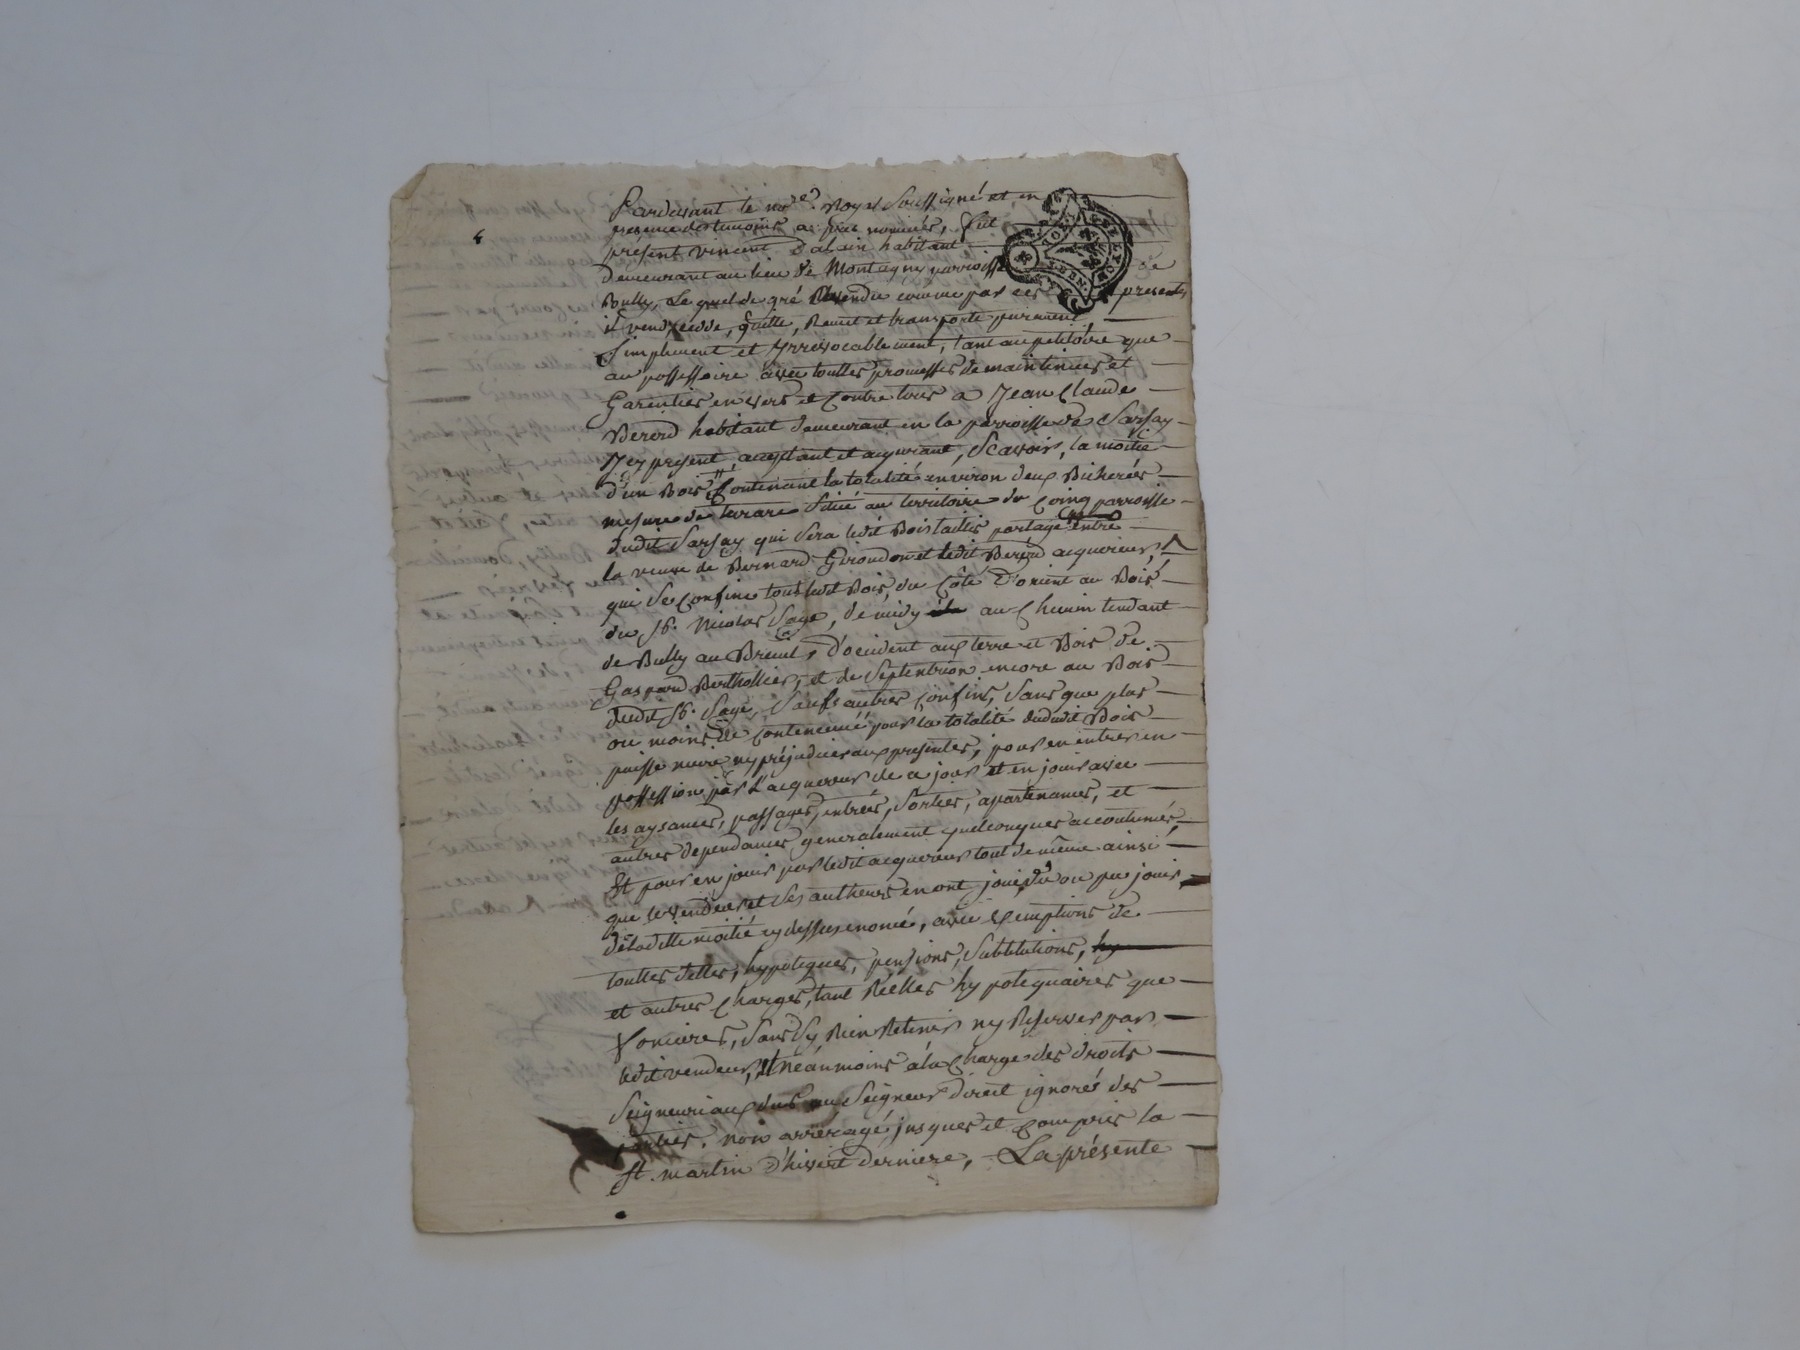 Pardevant le no.re Royal Soussigné et en
presence des temoins a pres nommés, fut
présent vincent Dalain habitant
demeurant au lieu de Montagny parroisse de
Bully, Le quel de gré a vendu comme par ces presentes
il vend, cedde, quitte, Remet et transporte purement
simplement et Yrrevocablement, tant au petitoire que
au possessoire avec touttes promesses de maintenües et
Garenties envers et Contre tous a Jean Claude
Bererd habitant demeurant en la parroisse de Sarsay
Icy present, acceptant et acquerant, Scavoir, la moitié
d'un Bois Contenant la totalité environ deux Bicherés
mesure de tarrare Situé au territoire du Coing parroisse
dudit Sarsay qui Sera ledit Bois taillis partagé entre
la veuve de Bernard Girondon et ledit Bererd acquereur,
qui Se Confine tout ledit Bois, du Côté D'orient au Bois
du Sr. Nicolas Sage, de midy au Chemin tendant
de Bully au Breuil, D'occident aux terre et Bois de
Gaspard Berthollier, et de Septentrion encore au Bois
dudit Sr. Sage, Saufs autres Confins, Sans que plus
ou moins de Contenüe pour la totalité dududit Bois
puisse nuire ny préjudicier aux presentes, pour en entrer en
possession par L'acquereur de ce jour et en jouir avec
les aysances, passages, entrées, Sorties, apartenances, et
autres dependances generalement quelconques accoutumés,
Et pour en jouir par ledit acquereur tout de même ainsi
que le vendeur et Ses autheurs en ont joui, dû ou pu jouir
de laditte moitié cy dessus enoncé, avec Exemptions de
touttes dettes, hypoteques, pensions, Subtitutions, hy
et autres Charges, tant Réelles hypotequaires que
foncieres, Sans y Rien Retenir ny Reserver par
ledit vendeur, Et néanmoins à la Charge des droits
Seigneuriaux dus au Seigneur direct ignoré des
parties, non arréragé jusques et Compris la
St. martin d'hivert derniere, La présente